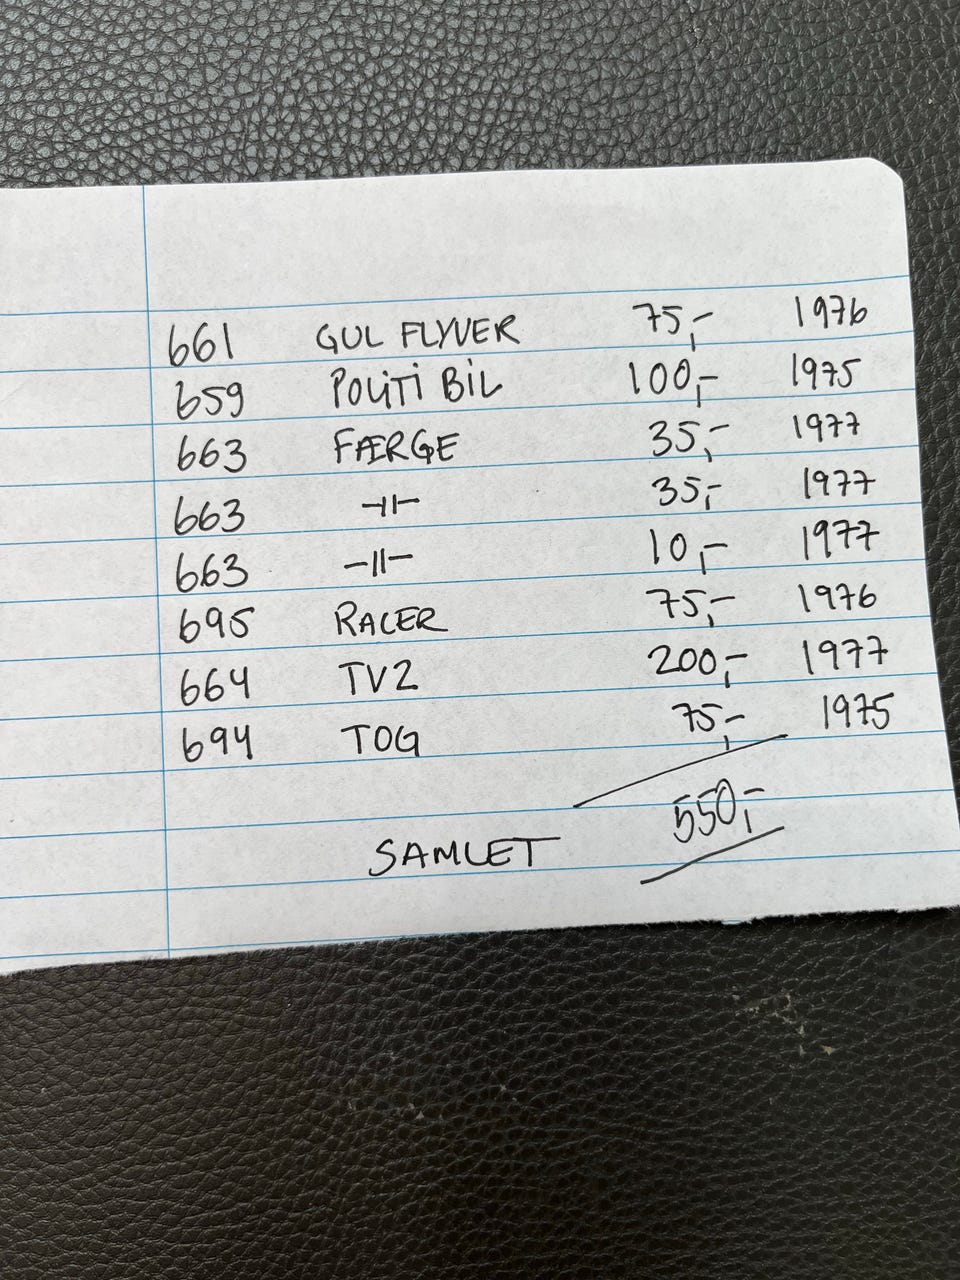 661 GUL FLYVER 75,- 1976
659 POLITI BIL 100,- 1975
663 FÆRGE 35,- 1977
663 -||- 35,- 1977
663 -||- 10,- 1977
695 RACER 75,- 1976
664 TV2 200,- 1977
694 TOG 75,- 1975
SAMLET 550,-